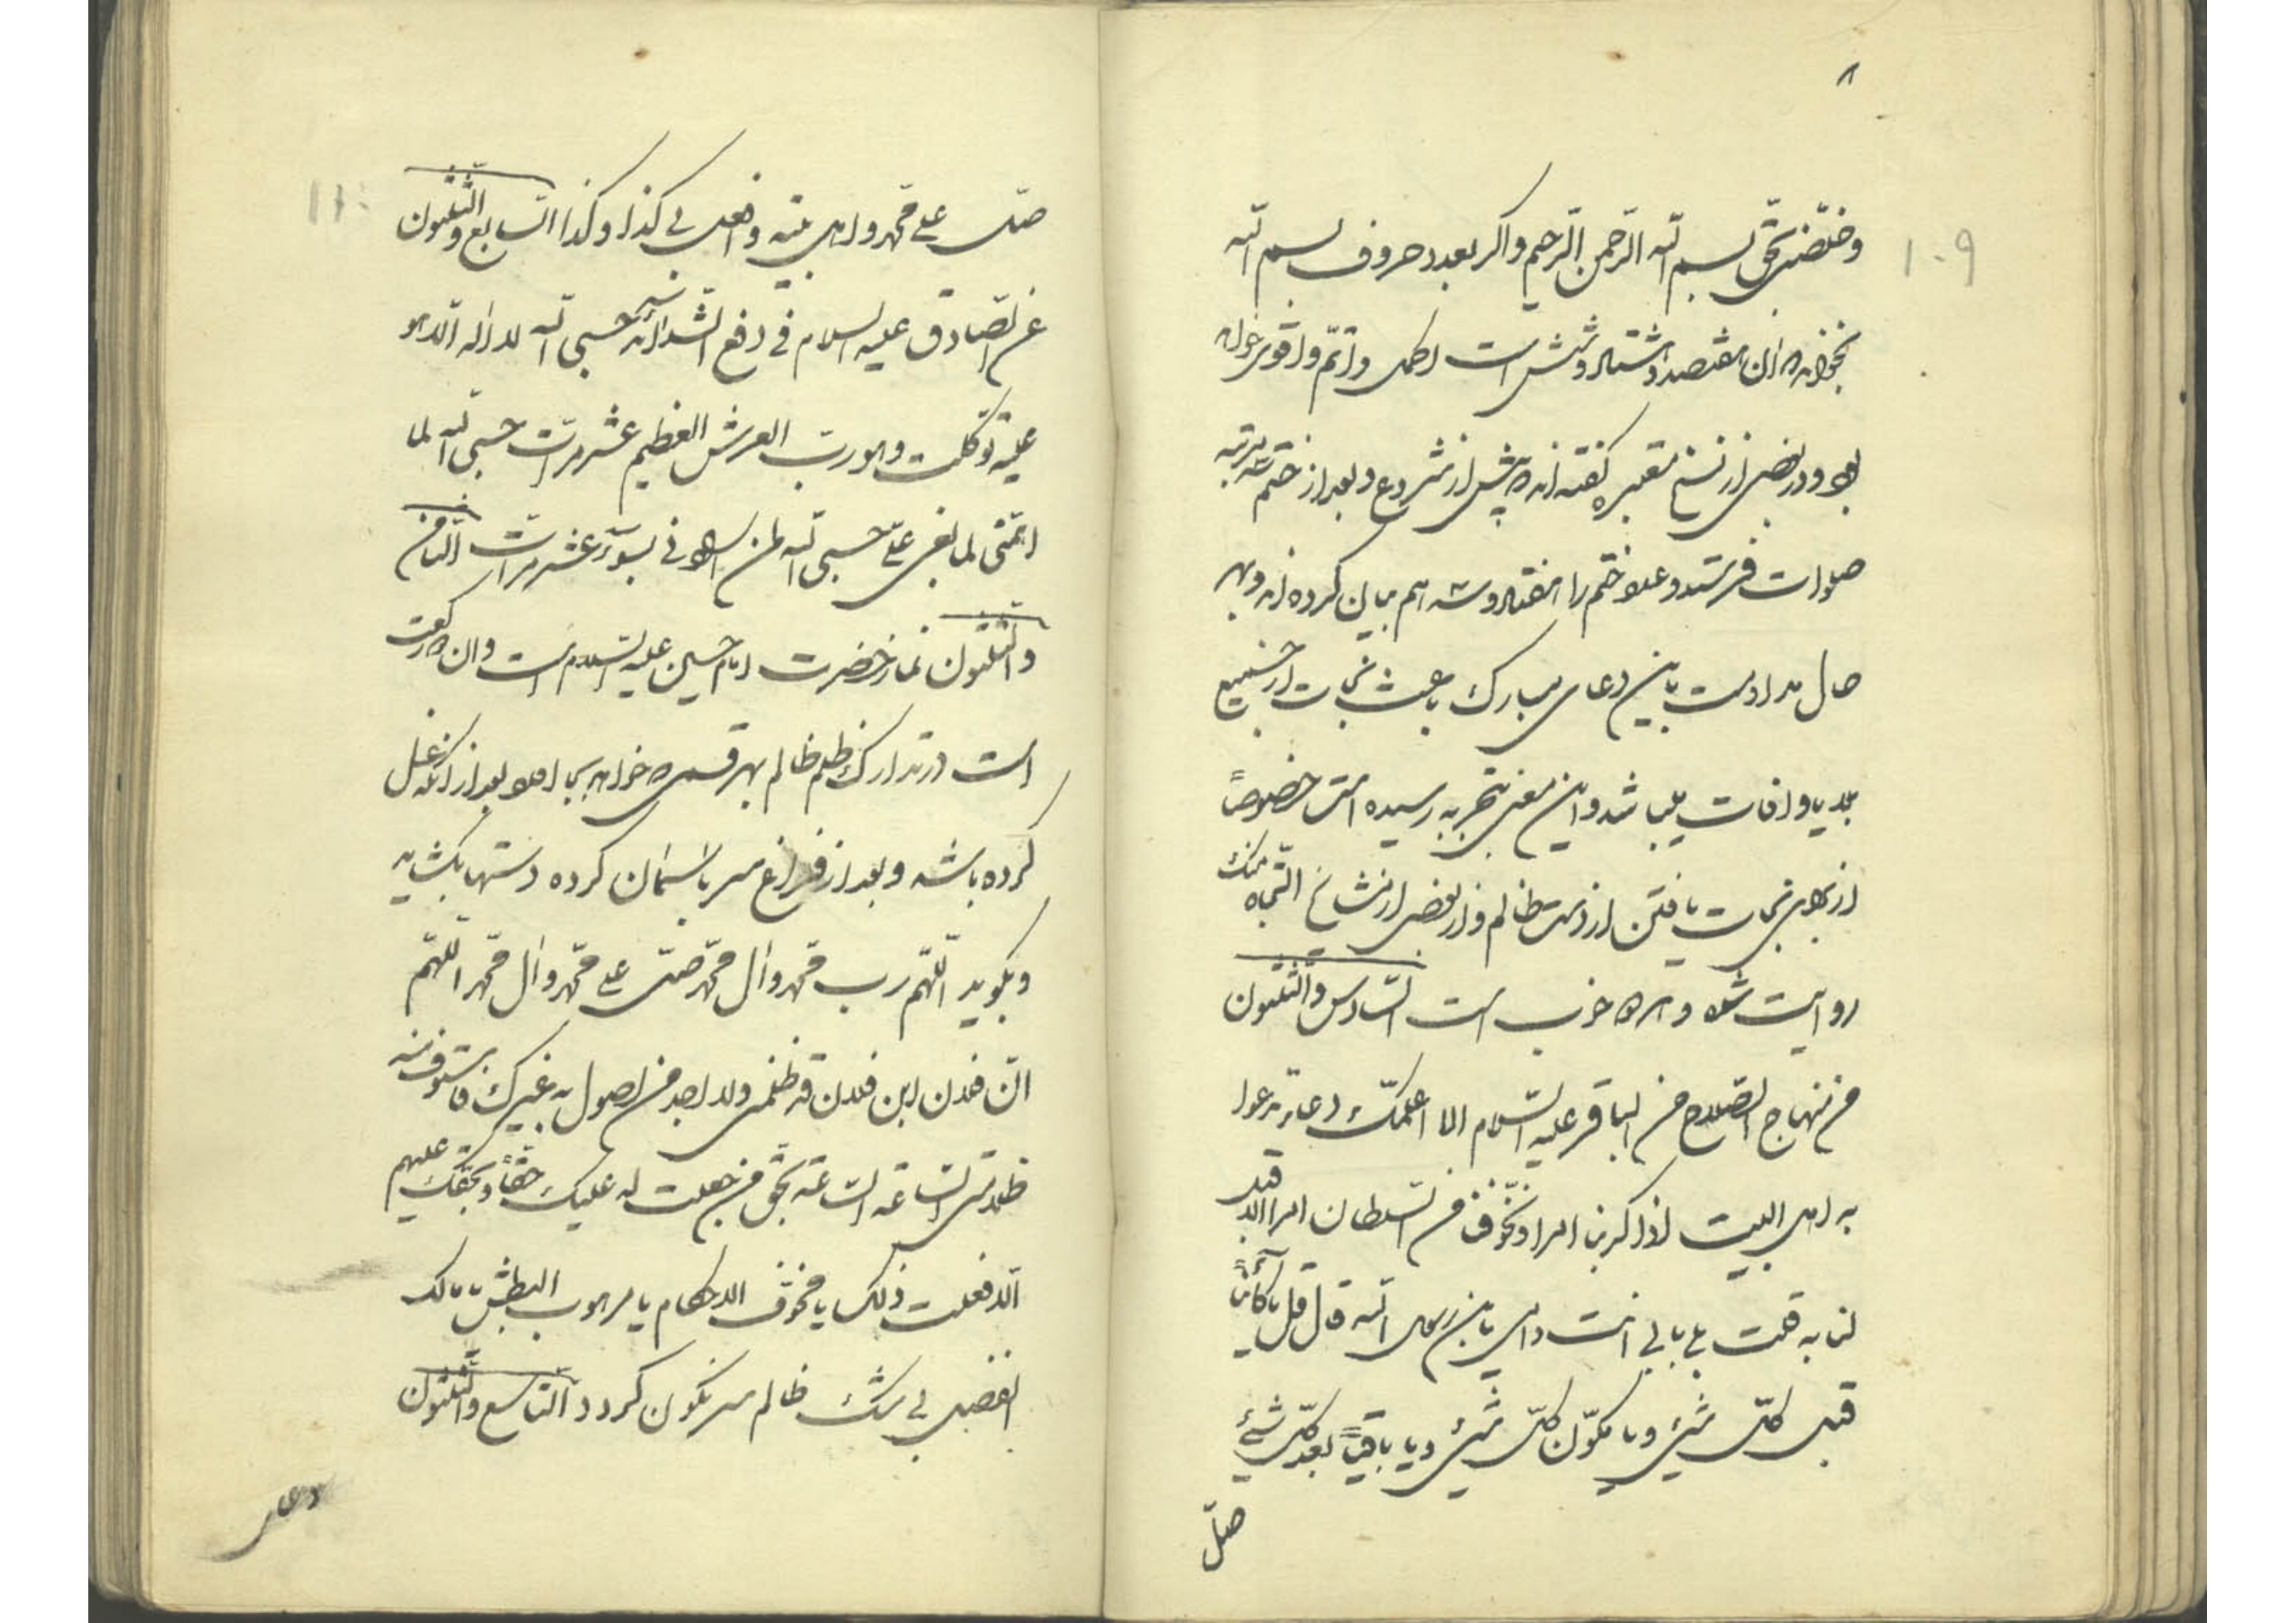 ۸
۱۰۹
وخلّصنی بحقّ بسم الله الرّحمن الرّحیم واکر بعدد حروف بسم الله
بخواند که آن هفتصد و هشتاد و شش است اکمل و اتمّ و اقوی خواهد
بود و در بعضی از نسخ معتبره گفته اند که پیش از شروع و بعد از ختم سه مرتبه
صلوات فرستد و عدد ختم را هفتاد و سه هم بیان کرده اند و بهر
حال مداومت باین دعای مبارک باعث نجات از جمیع
بلایا و آفات میباشد و این معنی بتجربه رسیده است خصوصاً
از برای نجات یافتن از دست ظالم و از بعضی از مشایخ
روایت شده و مجرب است السّادس والثّلثون
من منهاج الصّلاح عن الباقر علیه السّلام الا اعلمک دعاء تدعوا
به اهل البیت اذا کربنا امرا و تخوّفنا من السّلطان امرا لا قبل
لنا به قلت بلی بابی انت وامی یابن رسول الله قال قل یا کائناً
قبل کلّ شیئ ویا مکوّن کلّ شیئ ویا باقیاً بعد کلّ شیئ
صلّ
۱۱۰
صلّ علی محمد و اهل بیته وافعل بی کذا وکذا السّابع والثّلثون
عن الصّادق علیه السلام فی دفع الشّدائد حسبی الله لا اله الا هو
علیه توکلت وهو ربّ العرش العظیم عشر مرّات حسبی الله لما
اهمّنی لما بغی علیّ حسبی الله لمن ارادنی بسوء عشر مرّات الثّامن
والثّلثون نماز حضرت امام حسین علیه السّلام است وان دو رکعت
است در تدارک ظلم ظالم بهر قسم که خواهد بجا آورد بعد از آنکه غسل
کرده باشد و بعد از فراغ سر باسمان کرده دستها بکشاید
و بگوید اللّهمّ ربّ محمّد وال محمّد صلّ علی محمّد وال محمّد اللّهمّ
انّ فلان ابن فلان قد ظلمنی ولا اجد من اصول به غیرک فاستوف منه
ظلامتی السّاعة السّاعة بحقّ من جعلت له علیک حقّاً وبحقّک علیهم
الّا فعلت ذلک یا مخوّف الاحکام یا مرهوب البطش یا مالک
الفضل بی شک ظالم سرنکون کردد التّاسع والثّلثون
دعای